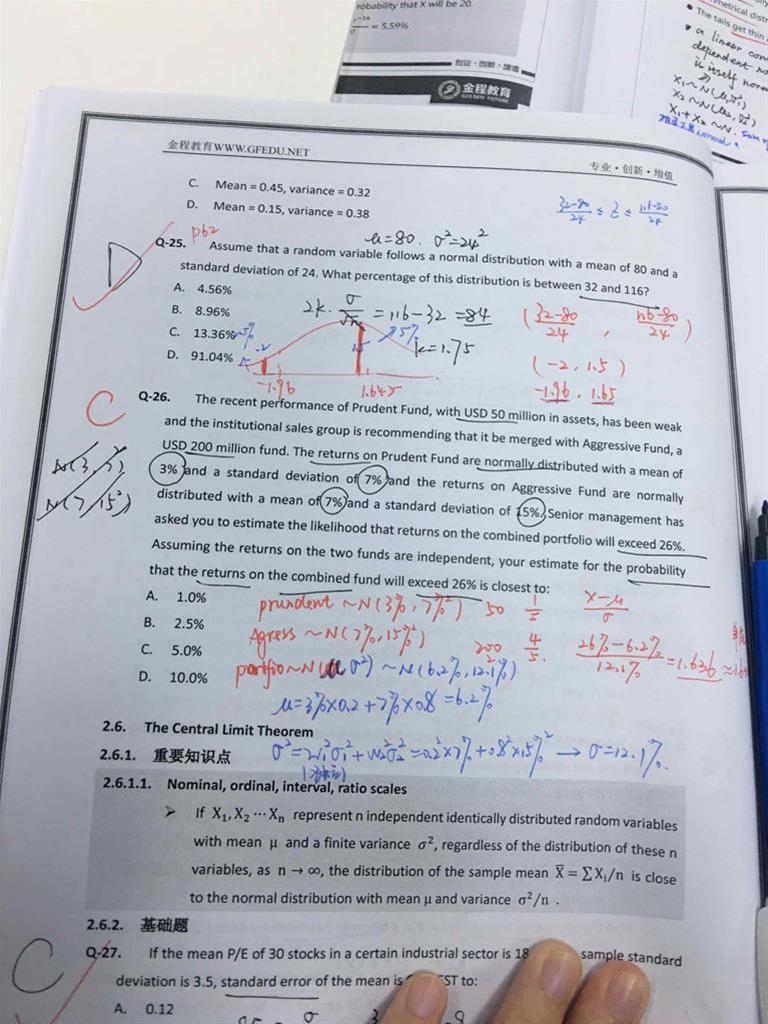 robability that X will be 20.
= 5.59%
专业·创新·增值
金程教育
GOLDEN FUTURE
The tails get thin
a linear
dependent
is itself
X₂~N(
X₁+X₂~N.
金程教育WWW.GFEDU.NET
专业·创新·增值
C. Mean = 0.45, variance = 0.32
D. Mean = 0.15, variance = 0.38
(32-80)/24 ≤ Z ≤ (116-80)/24
P62
μ=80. σ²=24²
D
Q-25. Assume that a random variable follows a normal distribution with a mean of 80 and a
standard deviation of 24. What percentage of this distribution is between 32 and 116?
A. 4.56%
B. 8.96%
C. 13.36%
D. 91.04%
2k·σ/√n = 116-32 = 84
k=1.75
(32-80)/24 , (116-80)/24
(-2, 1.5)
-1.96, 1.65
-2
1.5
-1.96
1.645
C
Q-26. The recent performance of Prudent Fund, with USD 50 million in assets, has been weak
and the institutional sales group is recommending that it be merged with Aggressive Fund, a
USD 200 million fund. The returns on Prudent Fund are normally distributed with a mean of
3% and a standard deviation of 7% and the returns on Aggressive Fund are normally
distributed with a mean of 7% and a standard deviation of 15%. Senior management has
asked you to estimate the likelihood that returns on the combined portfolio will exceed 26%.
Assuming the returns on the two funds are independent, your estimate for the probability
that the returns on the combined fund will exceed 26% is closest to:
N(7, 15²)
A. 1.0%
B. 2.5%
C. 5.0%
D. 10.0%
prundent ~N(3%, 7%²) 50 1/5
x-μ/σ
Agress ~N(7%, 15%²) 200 4/5.
(26%-6.2%)/12.1% = 1.636
portfio~N(μ σ²) ~N(6.2%, 12.1%²)
μ=3%×0.2+7%×0.8=6.2%
2.6. The Central Limit Theorem
2.6.1. 重要知识点
σ²=w₁²σ₁²+w₂²σ₂²=0.2²×7%²+0.8²×15%² → σ=12.1%.
2.6.1.1. Nominal, ordinal, interval, ratio scales
➢ If X₁, X₂ ⋯ Xₙ represent n independent identically distributed random variables
with mean μ and a finite variance σ², regardless of the distribution of these n
variables, as n → ∞, the distribution of the sample mean X̄ = ∑Xᵢ/n is close
to the normal distribution with mean μ and variance σ²/n .
2.6.2. 基础题
C
Q-27. If the mean P/E of 30 stocks in a certain industrial sector is 18 sample standard
deviation is 3.5, standard error of the mean is EST to:
A. 0.12